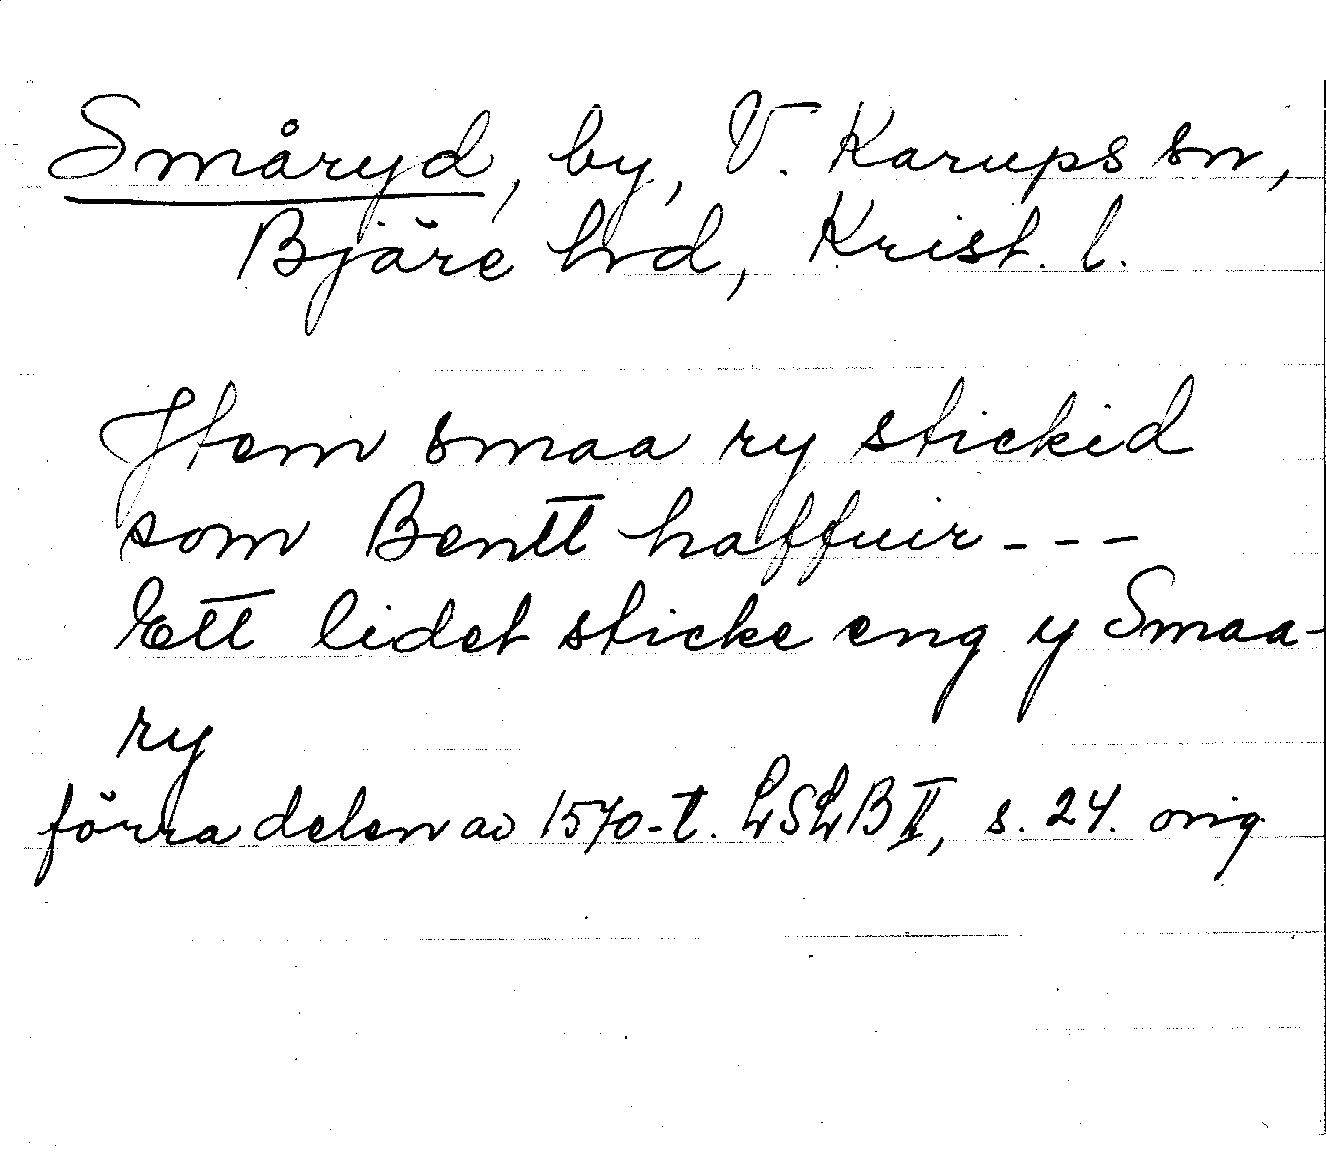 Småryd, by, V. Karups sn,
Bjäre hrd, Krist. l.
Jtem smaa ry stickid
som Bentt haffuir ---
Ett lidet sticke eng y Smaa-
ry
förra delen av 1570-t. LSLB II, s. 24. orig